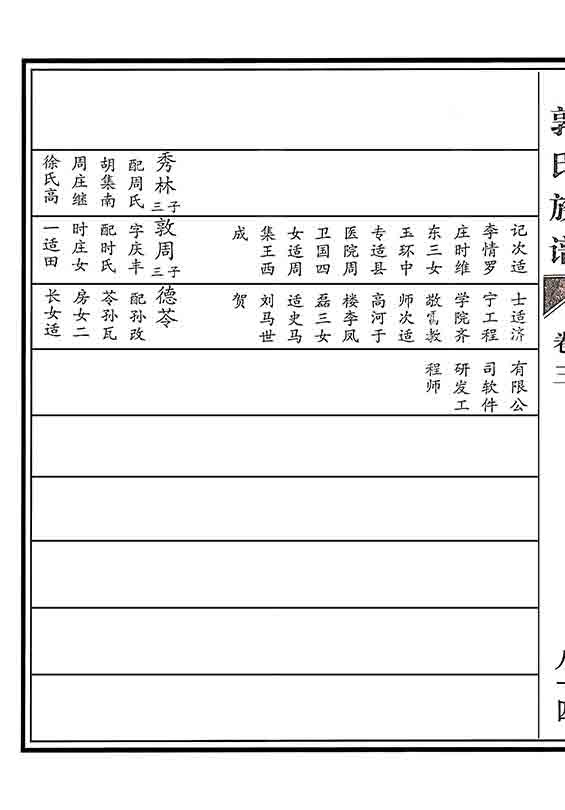 郭氏族谱
卷三
八十四
秀林
三子
配周氏
胡集南
周庄继
徐氏高
记次适
李情罗
庄时维
东三女
玉环中
专适县
医院周
卫国四
女适周
集王西
成
敦周
三子
字庆丰
配时氏
时庄女
一适田
士适济
宁工程
学院齐
敬教
师次适
高河于
楼李凤
磊三女
适史马
刘马世
贺
德苓
配孙改
苓孙瓦
房女二
长女适
有限公
司软件
研发工
程师